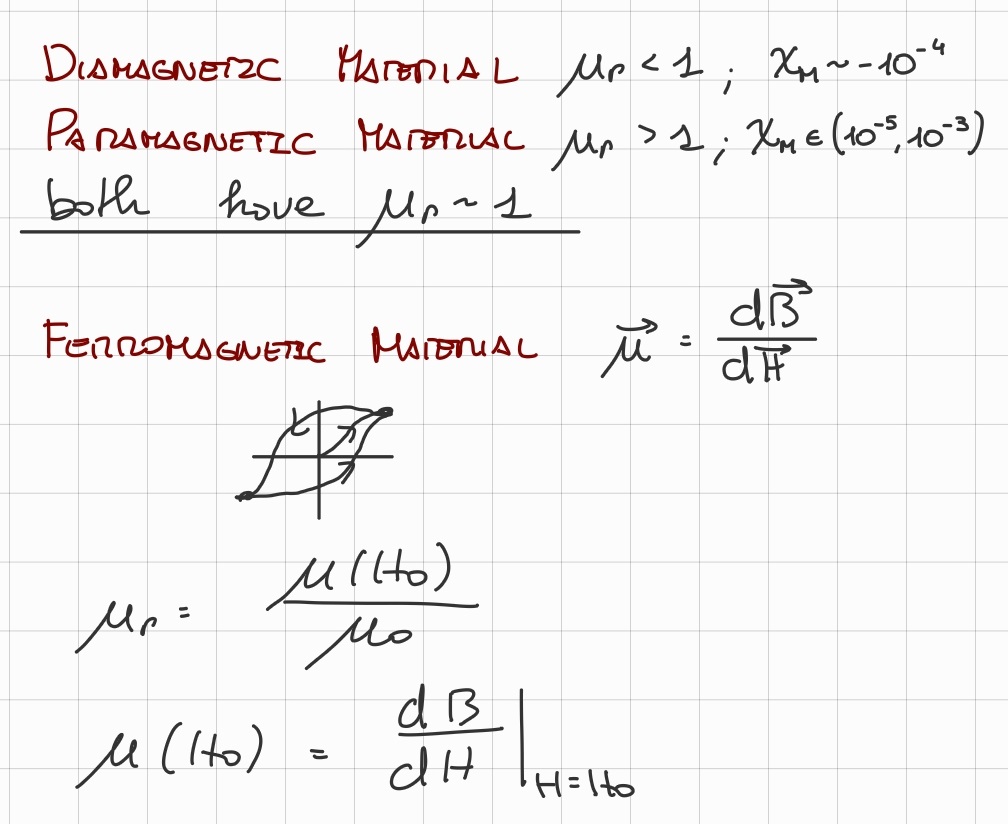 DIAMAGNETIC MATERIAL μr < 1 ; χM ~ -10^-4
PARAMAGNETIC MATERIAL μr > 1 ; χM ∈ (10^-5, 10^-3)
both have μr ~ 1
FERROMAGNETIC MATERIAL μ⃗ = dB⃗ / dH⃗
μr = μ(H0) / μ0
μ(H0) = dB / dH |H=H0